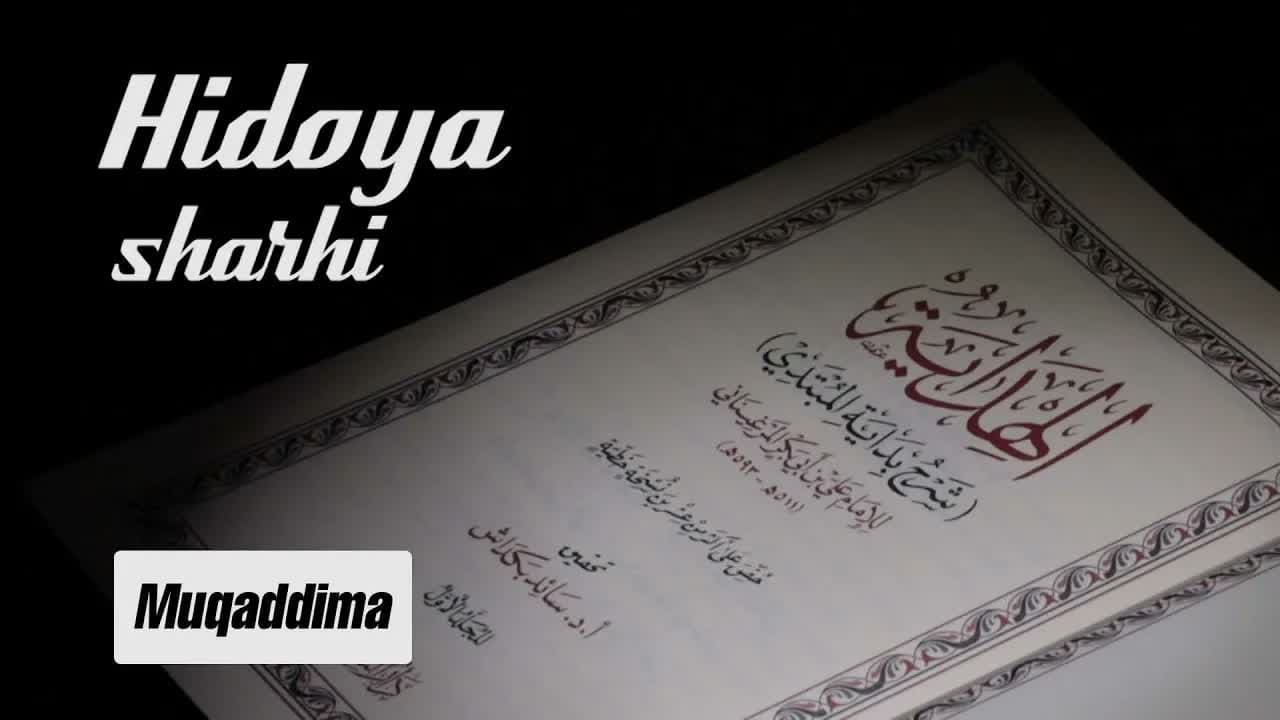 Hidoya
sharhi
الهداية
(شَرْحُ بِدَايَةِ المُبْتَدِي)
للإمَامِ عَلِيّ بْنِ أَبِي بَكْرٍ المَرْغِينَانِيّ
(٥١١هـ - ٥٩٣هـ)
تحقيق
أ.د. سائد بكداش
المجلد الأول
Muqaddima